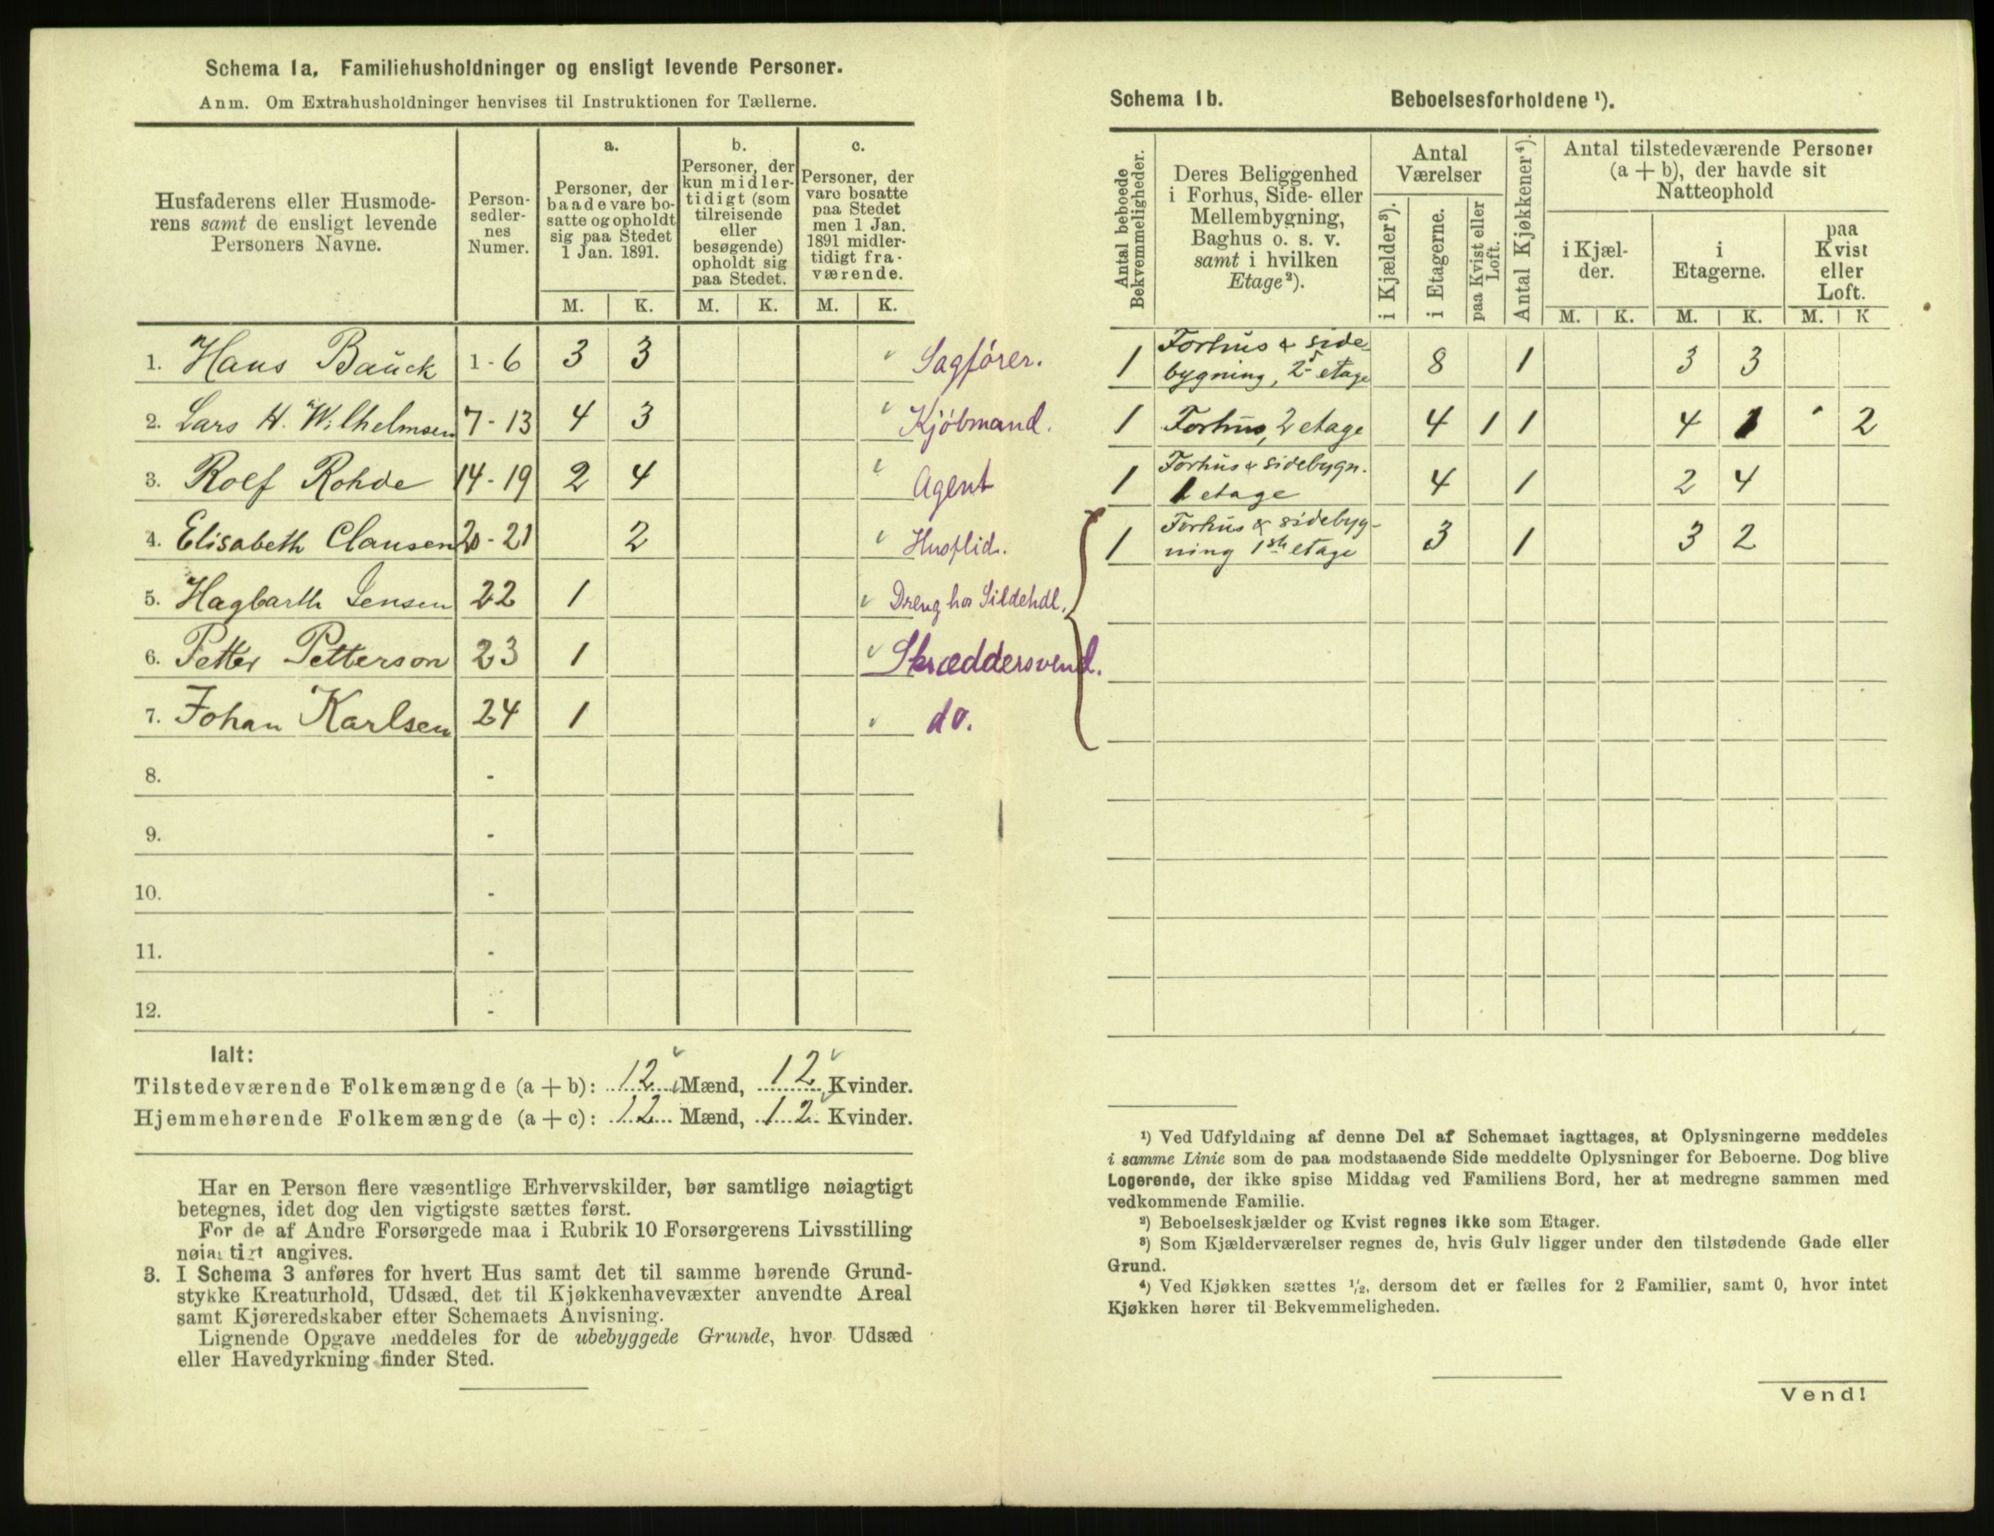 Schema 1a. Familiehusholdninger og ensligt levende Personer.
Anm. Om Extrahusholdninger henvises til Instruktionen for Tællerne.
Husfaderens eller Husmode-
rens samt de ensligt levende
Personers Navne.
Person-
sedler-
nes
Numer.
a.
Personer, der
baade vare bo-
satte og opholdt
sig paa Stedet
1 Jan. 1891.
b.
Personer, der
kun midler-
tidigt (som
tilreisende
eller
besøgende)
opholdt sig
paa Stedet.
c.
Personer, der
vare bosatte
paa Stedet
men 1 Jan.
1891 midler-
tidigt fra-
værende.
M. K. M. K. M. K.
1. Hans Bauck 1-6 3 3 Sagfører.
2. Lars H. Wilhelmsen 7-13 4 3 Kjöbmand.
3. Rolf Rohde 14-19 2 4 Agent
4. Elisabeth Clausen 20-21 2 Husflid.
5. Hagbarth Jensen 22 1 Dreng hos Sildehdl.
6. Petter Petterson 23 1 Skræddersvend.
7. Johan Karlsen 24 1 do.
8. -
9. -
10. -
11. -
12. -
Ialt:
Tilstedeværende Folkemængde (a + b): 12 Mænd, 12 Kvinder.
Hjemmehørende Folkemængde (a + c): 12 Mænd, 12 Kvinder.
Har en Person flere væsentlige Erhvervskilder, bør samtlige nøiagtigt
betegnes, idet dog den vigtigste sættes først.
For de af Andre Forsørgede maa i Rubrik 10 Forsørgerens Livsstilling
nøiagtigt angives.
3. I Schema 3 anføres for hvert Hus samt det til samme hørende Grund-
stykke Kreaturhold, Udsæd, det til Kjøkkenhavevæxter anvendte Areal
samt Kjøreredskaber efter Schemaets Anvisning.
Lignende Opgave meddeles for de ubebyggede Grunde, hvor Udsæd
eller Havedyrkning finder Sted.
Schema 1b. Beboelsesforholdene ¹).
Antal beboede
Bekvemmeligheder.
Deres Beliggenhed
i Forhus, Side- eller
Mellembygning,
Baghus o. s. v.
samt i hvilken
Etage²).
Antal
Værelser
i Kjælder³).
i Etagerne.
paa Kvist eller
Loft.
Antal Kjøkkener⁴).
Antal tilstedeværende Personer
(a + b), der havde sit
Natteophold
i Kjæl-
der.
i
Etagerne.
paa
Kvist
eller
Loft.
M. K. M. K. M. K
1 Forhus & side-
bygning, 2d etage 8 1 3 3
1 Forhus, 2 etage 4 1 1 4 1 2
1 Forhus & sidebygn.
1 etage 4 1 2 4
1 Forhus & sidebyg-
ning 1ste etage 3 1 3 2
¹) Ved Udfyldning af denne Del af Schemaet iagttages, at Oplysningerne meddeles
i samme Linie som de paa modstaaende Side meddelte Oplysninger for Beboerne. Dog blive
Logerende, der ikke spise Middag ved Familiens Bord, her at medregne sammen med
vedkommende Familie.
²) Beboelseskjælder og Kvist regnes ikke som Etager.
³) Som Kjælderværelser regnes de, hvis Gulv ligger under den tilstødende Gade eller
Grund.
⁴) Ved Kjøkken sættes ¹/₂, dersom det er fælles for 2 Familier, samt 0, hvor intet
Kjøkken hører til Bekvemmeligheden.
Vend!